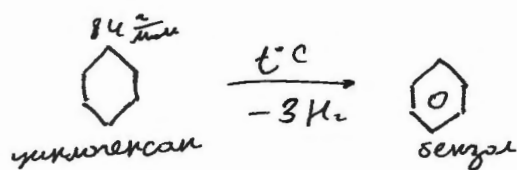 84 г/моль
t°C
-3H₂
циклогексан
бензол